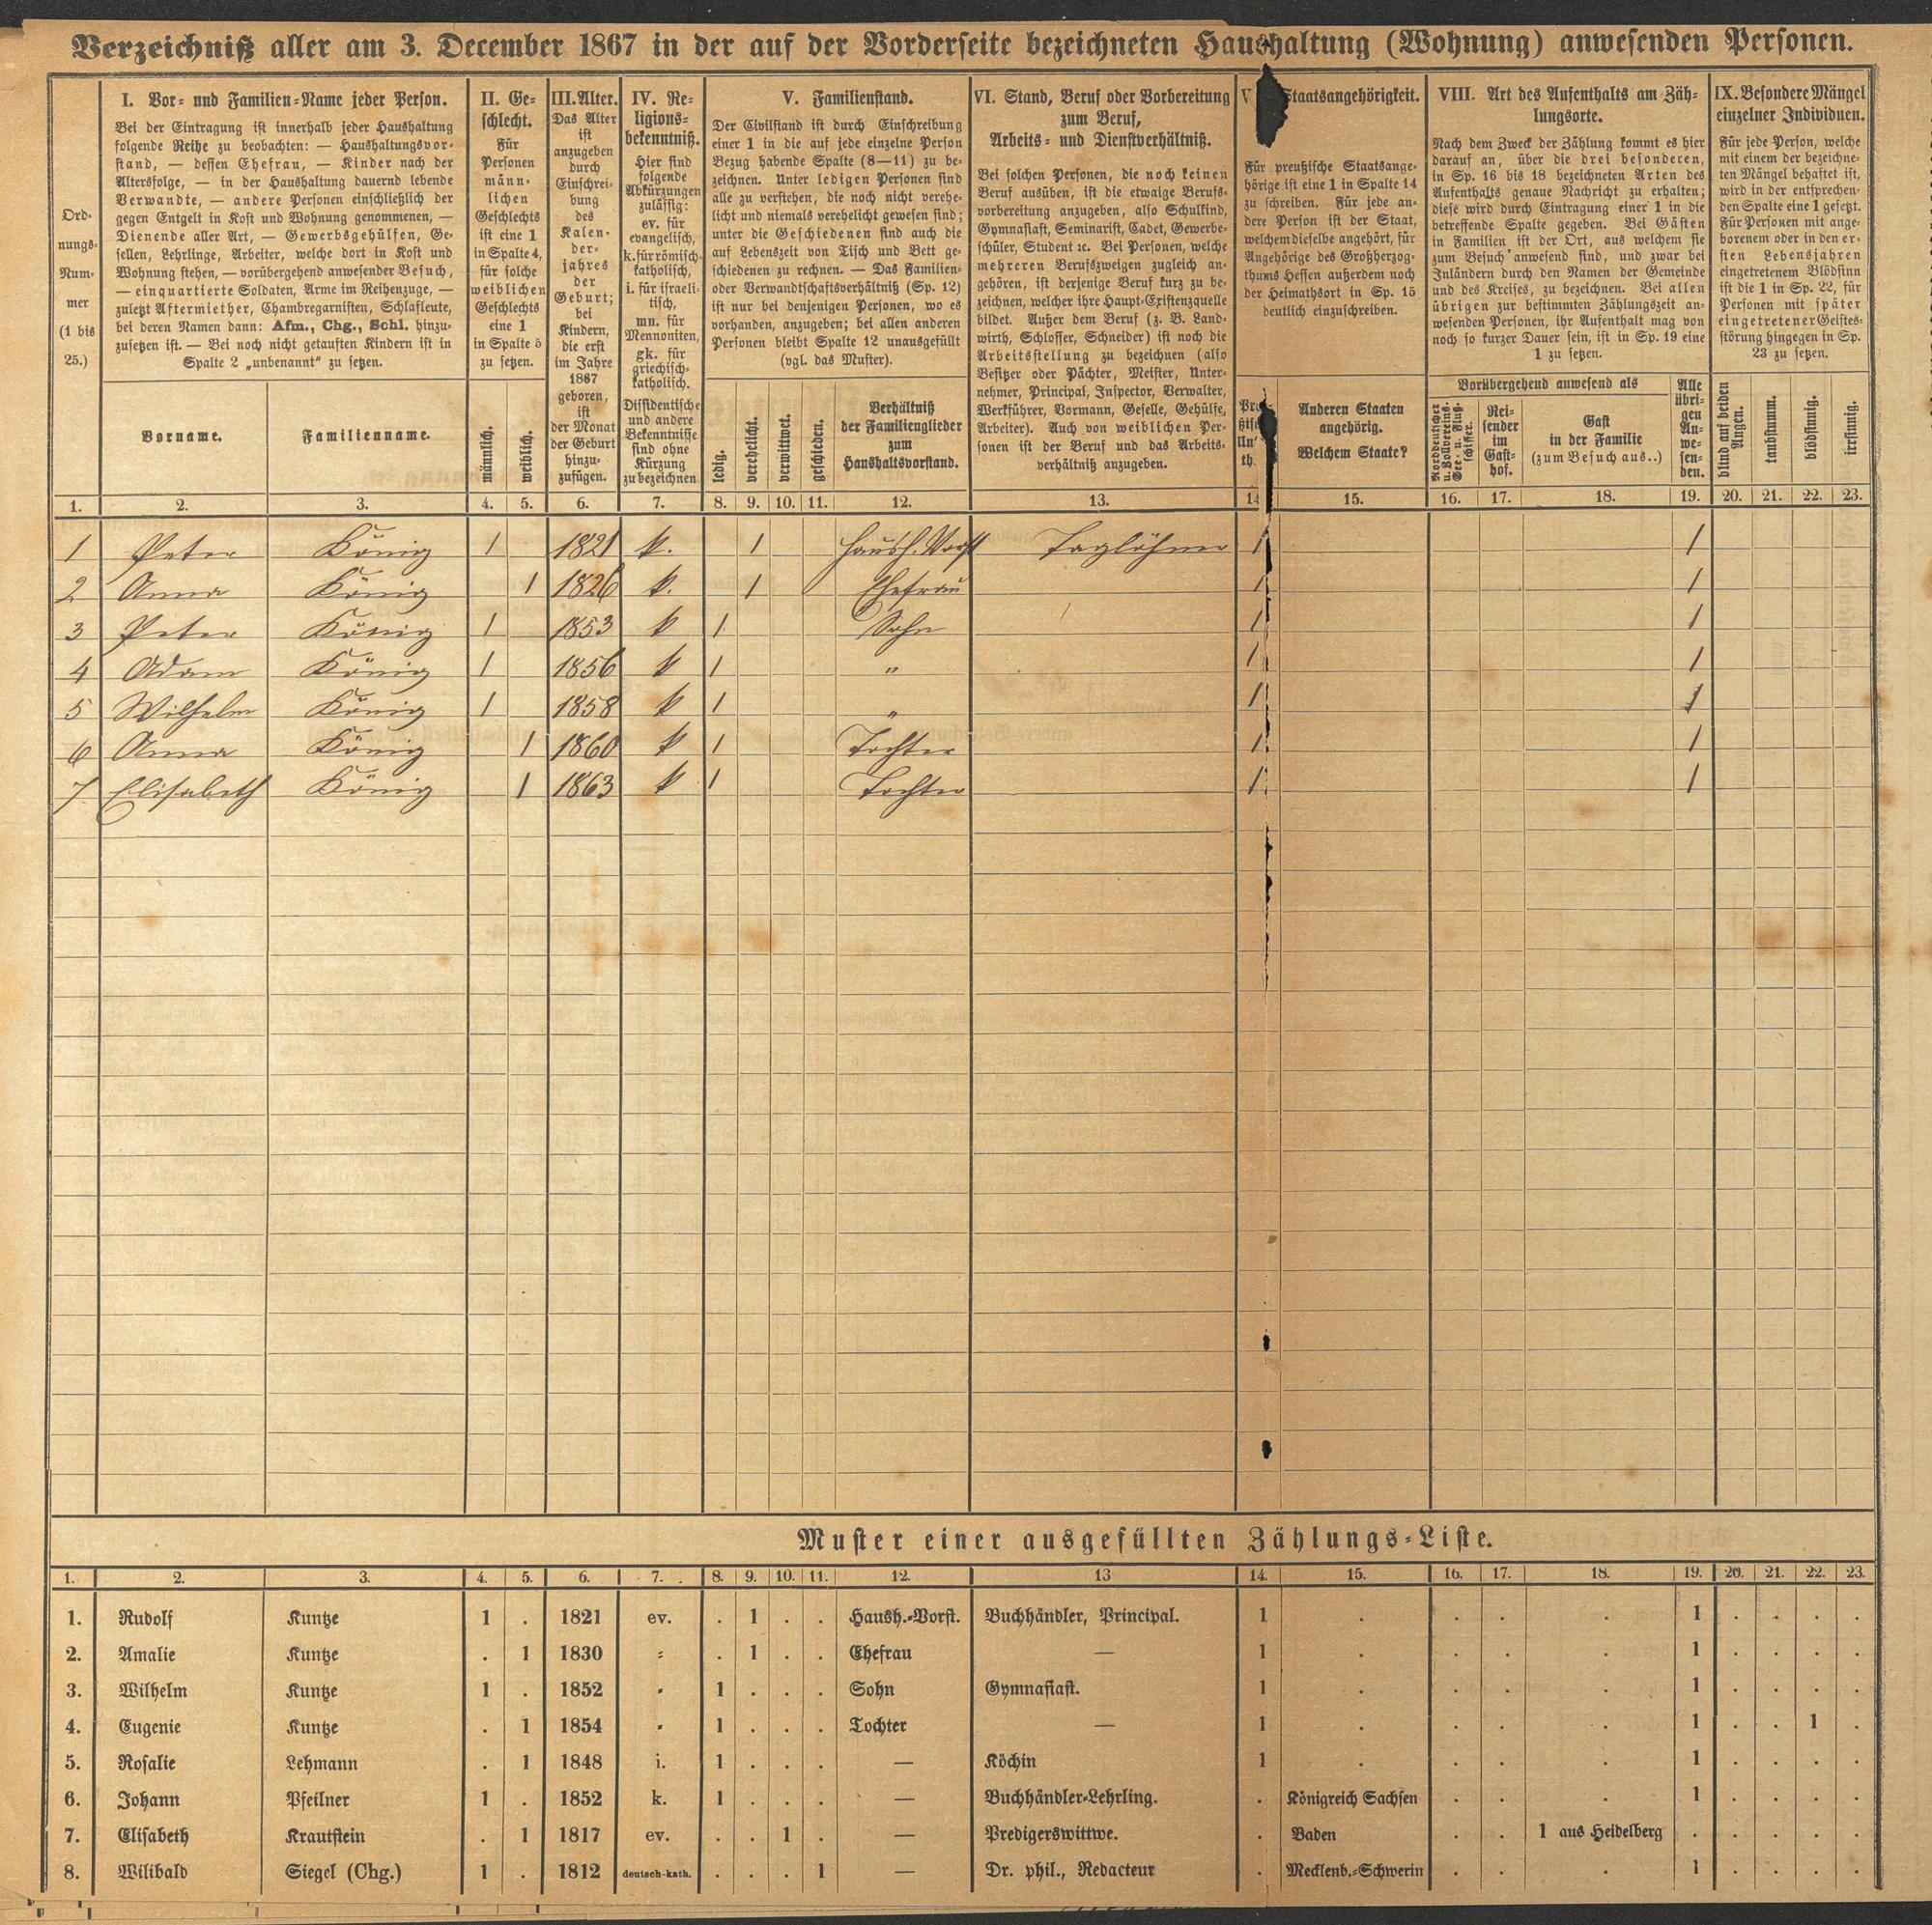 Verzeichniß aller am 3. December 1867 in der auf der Vorderseite bezeichneten Haushaltung (Wohnung) anwesenden Personen.
Ord-
nungs-
Num-
mer
(1 bis
25.)
I. Vor- und Familien-Name jeder Person.
Bei der Eintragung ist innerhalb jeder Haushaltung
folgende Reihe zu beobachten: — Haushaltungsvor-
stand, — dessen Ehefrau, — Kinder nach der
Altersfolge, — in der Haushaltung dauernd lebende
Verwandte, — andere Personen einschließlich der
gegen Entgelt in Kost und Wohnung genommenen, —
Dienende aller Art, — Gewerbsgehülfen, Ge-
sellen, Lehrlinge, Arbeiter, welche dort in Kost und
Wohnung stehen, — vorübergehend anwesender Besuch,
— einquartierte Soldaten, Arme im Reihenzuge, —
zuletzt Aftermiether, Chambregarnisten, Schlafleute,
bei deren Namen dann: Afm., Chg., Schl. hinzu-
zusetzen ist. — Bei noch nicht getauften Kindern ist in
Spalte 2 „unbenannt“ zu setzen.
Vorname.
Familienname.
II. Ge-
schlecht.
Für
Personen
männ-
lichen
Geschlechts
ist eine 1
in Spalte 4,
für solche
weiblichen
Geschlechts
eine 1
in Spalte 5
zu setzen.
männlich.
weiblich.
III. Alter.
Das Alter
ist
anzugeben
durch
Einschrei-
bung
des
Kalen-
der-
jahres
der
Geburt;
bei
Kindern,
die erst
im Jahre
1867
geboren,
ist
der Monat
der Geburt
hinzu-
zufügen.
IV. Re-
ligions-
bekenntniß.
Hier sind
folgende
Abkürzungen
zulässig:
ev. für
evangelisch,
k. für römisch-
katholisch,
i. für israeli-
tisch,
mn. für
Mennoniten,
gk. für
griechisch-
katholisch.
Dissidentische
und andere
Bekenntnisse
sind ohne
Kürzung
zu bezeichnen
V. Familienstand.
Der Civilstand ist durch Einschreibung
einer 1 in die auf jede einzelne Person
Bezug habende Spalte (8—11) zu be-
zeichnen. Unter ledigen Personen sind
alle zu verstehen, die noch nicht verehe-
licht und niemals verehelicht gewesen sind;
unter die Geschiedenen sind auch die
auf Lebenszeit von Tisch und Bett ge-
schiedenen zu rechnen. — Das Familien-
oder Verwandtschaftsverhältniß (Sp. 12)
ist nur bei denjenigen Personen, wo es
vorhanden, anzugeben; bei allen anderen
Personen bleibt Spalte 12 unausgefüllt
(vgl. das Muster).
ledig.
verehelicht.
verwittwet.
geschieden.
Verhältniß
der Familienglieder
zum
Haushaltsvorstand.
VI. Stand, Beruf oder Vorbereitung
zum Beruf,
Arbeits- und Dienstverhältniß.
Bei solchen Personen, die noch keinen
Beruf ausüben, ist die etwaige Berufs-
vorbereitung anzugeben, also Schulkind,
Gymnasiast, Seminarist, Cadet, Gewerbe-
schüler, Student ꝛc. Bei Personen, welche
mehreren Berufszweigen zugleich an-
gehören, ist derjenige Beruf kurz zu be-
zeichnen, welcher ihre Haupt-Existenzquelle
bildet. Außer dem Beruf (z. B. Land-
wirth, Schlosser, Schneider) ist noch die
Arbeitsstellung zu bezeichnen (also
Besitzer oder Pächter, Meister, Unter-
nehmer, Principal, Inspector, Verwalter,
Werkführer, Vormann, Geselle, Gehülfe,
Arbeiter). Auch von weiblichen Per-
sonen ist der Beruf und das Arbeits-
verhältniß anzugeben.
Staatsangehörigkeit.
Für preußische Staatsange-
hörige ist eine 1 in Spalte 14
zu schreiben. Für jede an-
dere Person ist der Staat,
welchem dieselbe angehört, für
Angehörige des Großherzog-
thums Hessen außerdem noch
der Heimathsort in Sp. 15
deutlich einzuschreiben.
Anderen Staaten
angehörig.
Welchem Staate?
VIII. Art des Aufenthalts am Zäh-
lungsorte.
Nach dem Zweck der Zählung kommt es hier
darauf an, über die drei besonderen,
in Sp. 16 bis 18 bezeichneten Arten des
Aufenthalts genaue Nachricht zu erhalten;
diese wird durch Eintragung einer 1 in die
betreffende Spalte gegeben. Bei Gästen
in Familien ist der Ort, aus welchem sie
zum Besuch anwesend sind, und zwar bei
Inländern durch den Namen der Gemeinde
und des Kreises, zu bezeichnen. Bei allen
übrigen zur bestimmten Zählungszeit an-
wesenden Personen, ihr Aufenthalt mag von
noch so kurzer Dauer sein, ist in Sp. 19 eine
1 zu setzen.
Vorübergehend anwesend als
Norddeutscher
u. Zollvereins-
See- u. Fluß-
schiffer.
Rei-
sender
im
Gast-
hof.
Gast
in der Familie
(zum Besuch aus..)
Alle
übri-
gen
An-
we-
sen-
den.
IX. Besondere Mängel
einzelner Individuen.
Für jede Person, welche
mit einem der bezeichne-
ten Mängel behaftet ist,
wird in der entsprechen-
den Spalte eine 1 gesetzt.
Für Personen mit ange-
borenem oder in den er-
sten Lebensjahren
eingetretenem Blödsinn
ist die 1 in Sp. 22, für
Personen mit später
eingetretener Geistes-
störung hingegen in Sp.
23 zu setzen.
blind auf beiden
Augen.
taubstumm.
blödsinnig.
irrsinnig.
1. 2. 3. 4. 5. 6. 7. 8. 9. 10. 11. 12. 13. 14 15. 16. 17. 18. 19. 20. 21. 22. 23.
1 Peter König 1 1821 k. 1 Haush. Vorst Taglöhner 1 1
2 Anna König 1 1826 k. 1 Ehefrau 1 1
3 Peter König 1 1853 k 1 Sohn 1 1
4 Adam König 1 1856 k 1 " 1 1
5 Wilhelm König 1 1858 k 1 " 1 1
6 Anna König 1 1860 k 1 Tochter 1 1
7 Elisabeth König 1 1863 k 1 Tochter 1 1
Muster einer ausgefüllten Zählungs-Liste.
1. 2. 3. 4. 5. 6. 7. 8. 9. 10. 11. 12. 13 14. 15. 16. 17. 18. 19. 20. 21. 22. 23.
1. Rudolf Kuntze 1 . 1821 ev. . 1 . . Haush.-Vorst. Buchhändler, Principal. 1 . . . . 1 . . . .
2. Amalie Kuntze . 1 1830 " . 1 . . Ehefrau — 1 . . . . 1 . . . .
3. Wilhelm Kuntze 1 . 1852 " 1 . . . Sohn Gymnasiast. 1 . . . . 1 . . . .
4. Eugenie Kuntze . 1 1854 " 1 . . . Tochter — 1 . . . . 1 . . 1 .
5. Rosalie Lehmann . 1 1848 i. 1 . . . — Köchin 1 . . . . 1 . . . .
6. Johann Pfeilner 1 . 1852 k. 1 . . . — Buchhändler-Lehrling. . Königreich Sachsen . . . 1 . . . .
7. Elisabeth Krautstein . 1 1817 ev. . . 1 . — Predigerswittwe. . Baden . . 1 aus Heidelberg . . . . .
8. Wilibald Siegel (Chg.) 1 . 1812 deutsch-kath. . . . 1 — Dr. phil., Redacteur . Mecklenb.-Schwerin . . . 1 . . . .